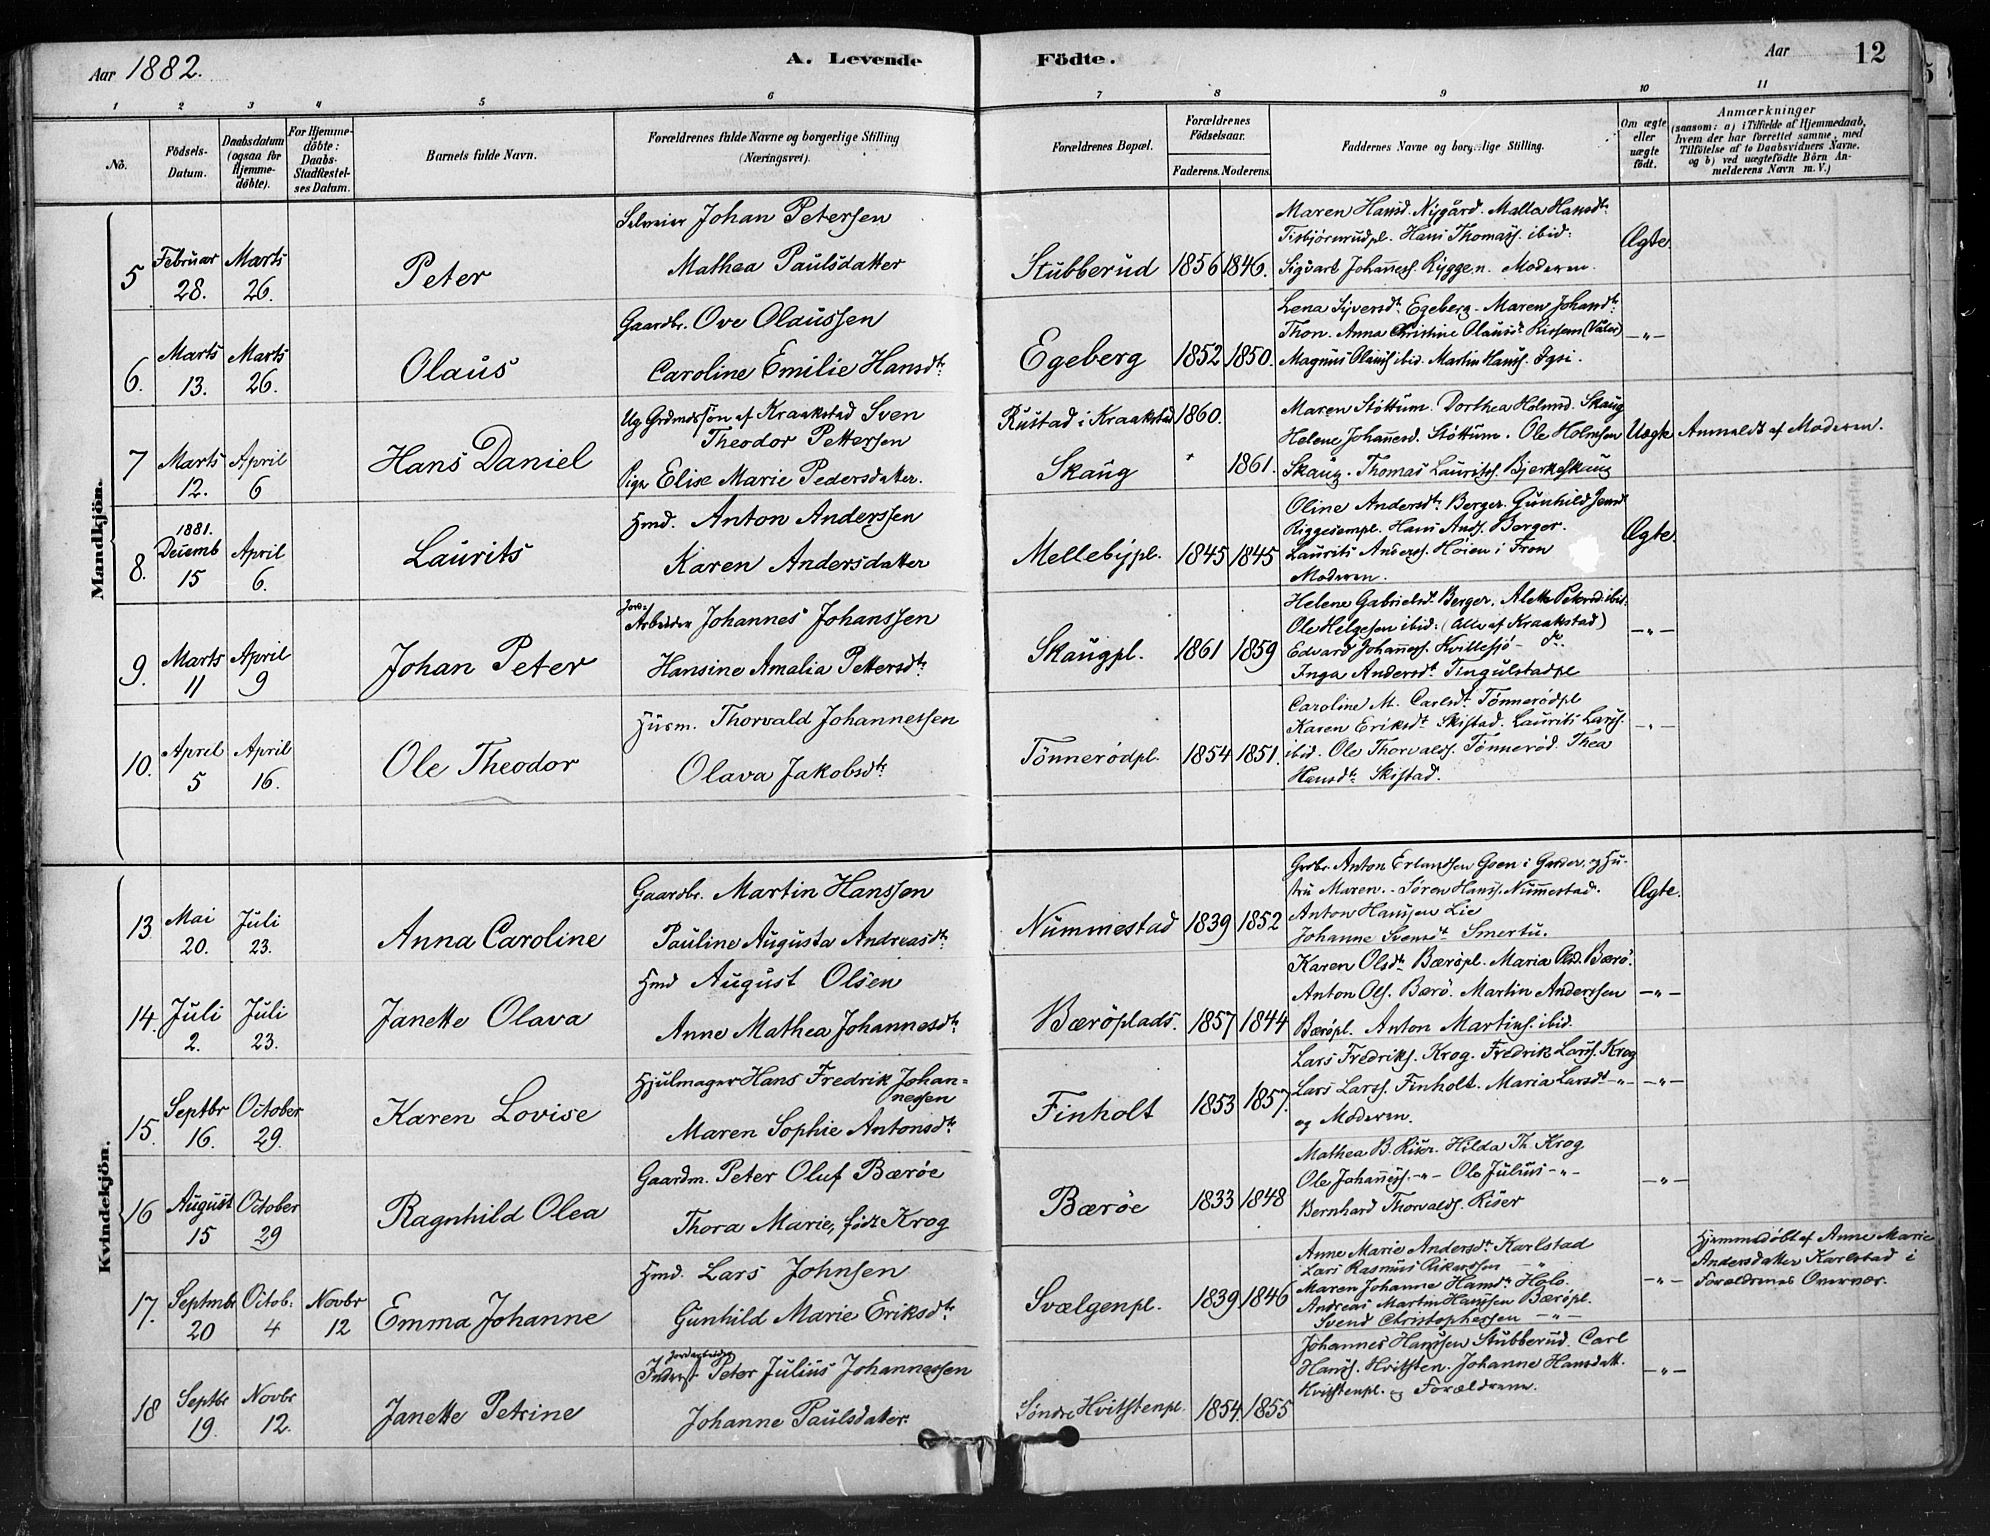 Aar 1882. A. Levende Födte. Aar 12
1 2 3 4 5 6 7 8 9 10 11
No. Födsels-Datum. Daabsdatum (ogsaa for Hjemme-döbte). For Hjemme-döbte: Daabs-Stadfæstel-ses Datum. Barnets fulde Navn. Forældrenes fulde Navne og borgerlige Stilling (Næringsvei). Forældrenes Bopæl. Forældrenes Födselsaar. Faderens. Moderens. Faddernes Navne og borgerlige Stilling. Om ægte eller uægte födt. Anmærkninger (saasom: a) i Tilfælde af Hjemmedaab, hvem der har forrettet samme, med Tilföielse af to Daabsvidners Navne, og b) ved uægtefödte Börn An-melderens Navn m. V.)
Mandkjön.
5 Februar 28. Marts 26. Peter
Selveier Johan Petersen
Mathea Paulsdatter
Stubberud 1856 1846.
Maren Hansd. Nygård. Malla Hansdtr.
Tisbjörnrudpl. Hans Thomass. ibid:
Sigvart Johanness. Ryggen. Moderen.
Ægte
6. Marts 13. Marts 26. Olaus
Gaardbr. Ove Olaussen
Caroline Emilie Hansdtr.
Egeberg 1852 1850.
Lena Syversdtr. Egeberg. Maren Johansdtr.
Thon. Anna Christine Olausdtr.
Magnus Olauss ibid. Martin Hanss.
—"—
7 Marts 12. April 6 Hans Daniel
Ug Grdmdssön af Kraakstad Sven
Theodor Pettersen
Pige Elise Marie Pedersdatter.
Rustad i Kraakstad 1860.
Skaug " 1861.
Maren Stöttum. Dorthea Holmsd. Skaug
Helene Johannesd. Stöttum. Ole Holmsen
Skaug. Thomas Lauritss. Bjerkeskaug
Uægte
Anmeldt af Moderen.
8. 1881. Decemb 15 April 6. Laurits
Hmd. Anton Anderssen
Karen Andersdatter
Mellebypl. 1845 1845
Oline Andersdtr. Berger. Gunhild Jensd
Riggesempl. Hans Ands. Berger.
Laurits Anderss. Höien i Fron
Moderen.
Ægte.
9. Marts 11 April 9 Johan Peter
Jord-
Arbeider Johannes Johanssen
Hansine Amalia Pettersdtr.
Skaugpl. 1861 1859
Helene Gabrielsdt. Berger. Alette Petersd ibid:
Ole Helgesen ibid: (Alle af Kraakstad)
Edvard Johanness. Kvillesjö
Inga Andersdtr. Tingulstadpl
—"—
10. April 5 April 16. Ole Theodor
Husm. Thorvald Johannessen
Olava Jakobsdtr.
Tönnerödpl. 1854 1851.
Caroline M. Carlsdt. Tönnerödpl
Karen Eriksdt Skistad. Laurits Larss.
ibid. Ole Thorvalds. Tönneröd. Thea
Hansdtr. Skistad.
—"—
Kvindekjön.
13. Mai 20. Juli 23. Anna Caroline
Gaardbr. Martin Hanssen
Pauline Augusta Andreasdtr.
Nummestad 1839 1852
Grdbr. Anton Erlandsen Goen i Garder, og Hu-
stru Maren. - Sören Hanss. Nummestad.
Anton Hanssen Lie
Johanne Svensdt. Smertu.
Ægte.
14. Juli 2. Juli 23. Janette Olava
Hmd August Olsen
Anne Mathea Johannesdtr.
Beröplads. 1857 1844
Karen Olsdtr. Beröpl. Maria Olsd. Berö.
Anton Ols. Berö. Martin Anderssen
Beröpl. Anton Martins. ibid.
—"—
15. Septbr 16. October 29. Karen Lovise
Hjulmager Hans Fredrik Johan=
nessen
Maren Sophie Antonsdtr.
Finholt 1853 1857.
Lars Fredriks. Krog. Fredrik Larss. Krog
Lars Larss. Finholt. Maria Larsdt. —"—
og Moderen.
—"—
16 August 15 October 29 Ragnhild Olea
Gaardm. Peter Oluf Bæröe
Thora Marie, födt Krog
Bæröe 1833 1848
Mathea B. Riser. Hilda Th. Krog
Ole Johanness. —"— Ole Julius —"—
Bernhard Thorvalds. Riser
—"—
17. Septmbr 20 Octob: 4 Novbr 12 Emma Johanne
Hmd. Lars Johnsen
Gunhild Marie Eriksdtr.
Svælgenpl. 1839 1846
Anne Marie Andersdt. Karlstad
Lars Rasmus —"—
Maren Johanne Hansdt. Holo.
Andreas Martin Hanssen Beröpl.
Svend Christophersen —"—
—"—
Hjemmedöbt af Anne Marie
Andersdatter Karlstad i
Forældrenes Overvær.
18 Septbr 19. Novbr 12. Janette Petrine
Jordarbeider
Inderst Peter Julius Johannessen
Johanne Paulsdatter.
Söndre Hvitstenpl. 1854. 1855
Johannes Hanssen Stubberud. Carl
Hanss. Hvitsten. Johanne Hansdatt.
Kvitstenpl. og Forældrene.
—"—